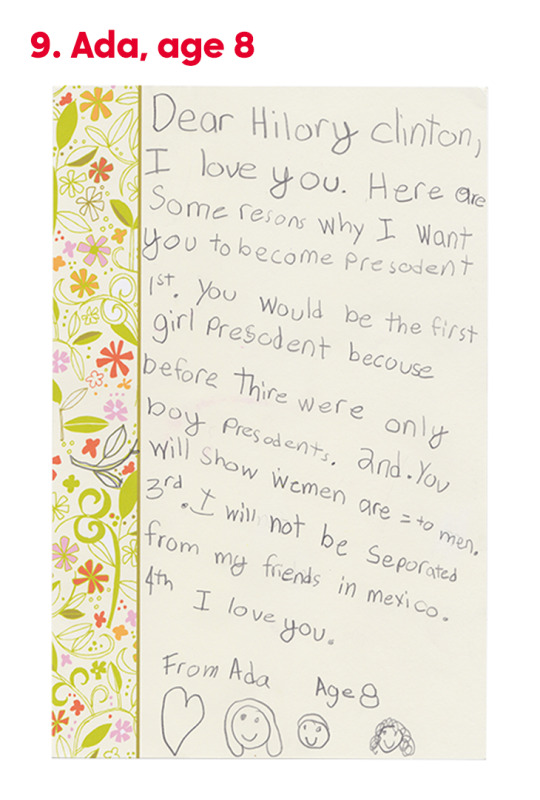 9. Ada, age 8
Dear Hilory clinton,
I love you. Here are
Some resons why I want
you to become presodent
1st. you would be the first
girl presodent becouse
before thire were only
boy presodents. 2nd. You
will show women are = to men.
3rd. I will not be seporated
from my friends in mexico.
4th I love you.
From Ada Age 8